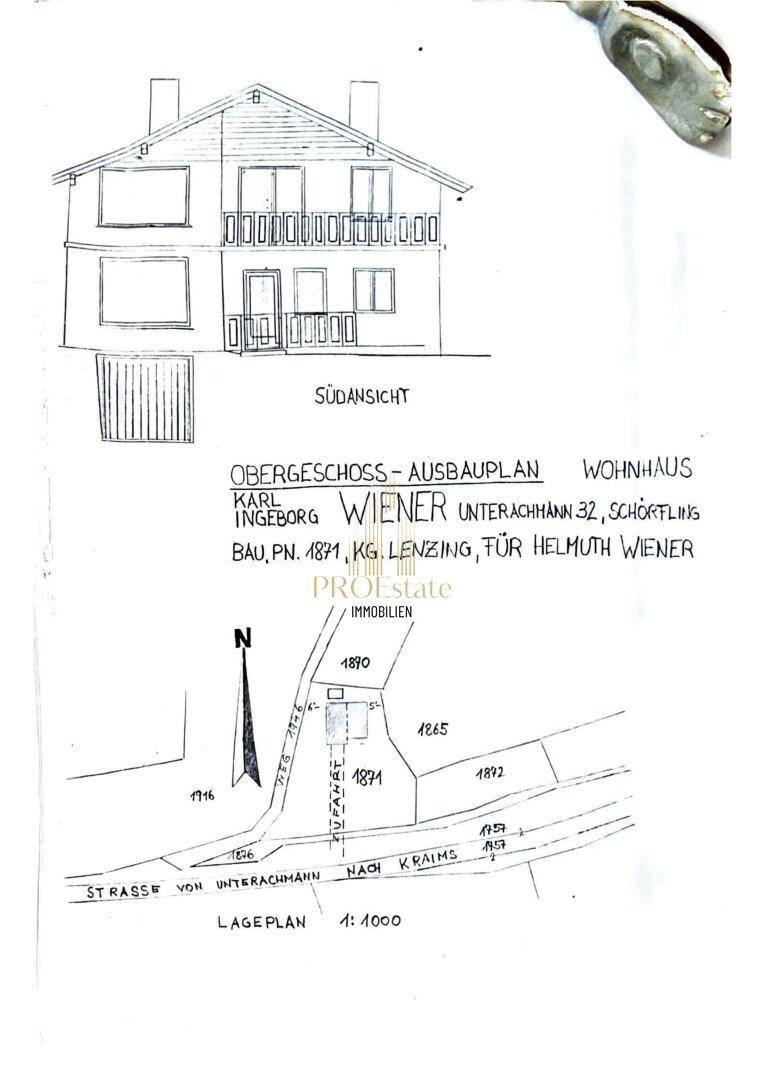 SÜDANSICHT
OBERGESCHOSS-AUSBAUPLAN WOHNHAUS
KARL
INGEBORG WIENER UNTERACHMANN 32, SCHÖRFLING
BAU, PN. 1871, KG. LENZING, FÜR HELMUTH WIENER
PROEstate
IMMOBILIEN
N
1870
6- 5-
WEG 1946
1865
ZUFAHRT
1871
1872
1916
1757
2
1757
2
1876
STRASSE VON UNTERACHMANN NACH KRAIMS
LAGEPLAN 1:1000